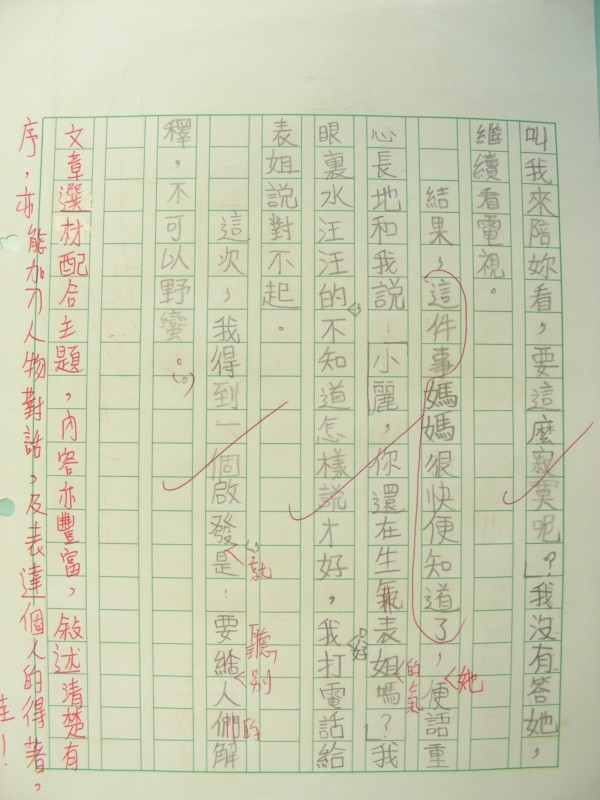 叫我來陪妳看,要這麼寂寞呢?」我沒有答她,
繼續看電視。
結果,這件事媽媽很快便知道了,她便語重
心長地和我說:「小麗,你還在生氣表姐的氣嗎?」我
眼裏水汪汪的,不知道怎樣說才好,我打電話給
表姐說對不起。
這次,我得到一個啟發,就是:要給聽別人們的解
釋,不可以野蠻。
文章選材配合主題,內容亦豐富,敘述清楚有
序,亦能加入人物對話,及表達個人的得著,
佳!